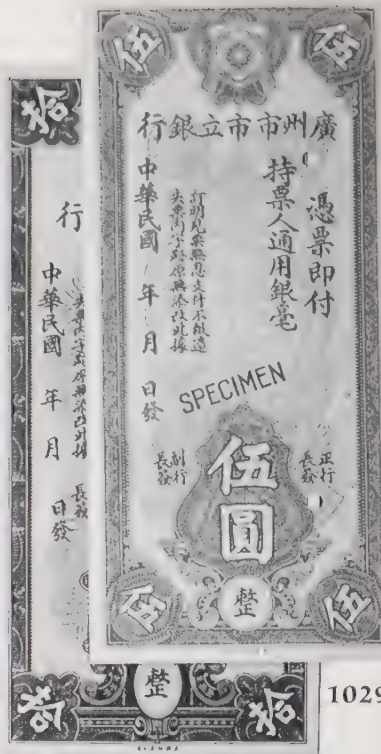 伍 伍
廣州市市立銀行
憑票即付
持票人通用銀毫
訂明見票無息支付不能遺
失票內字跡原無添改此據
中華民國 年 月 日發
SPECIMEN
正行長發
副行長發
伍圓
整
伍 伍
拾
行
長發
中華民國 年 月 日發
整
拾 拾
1029